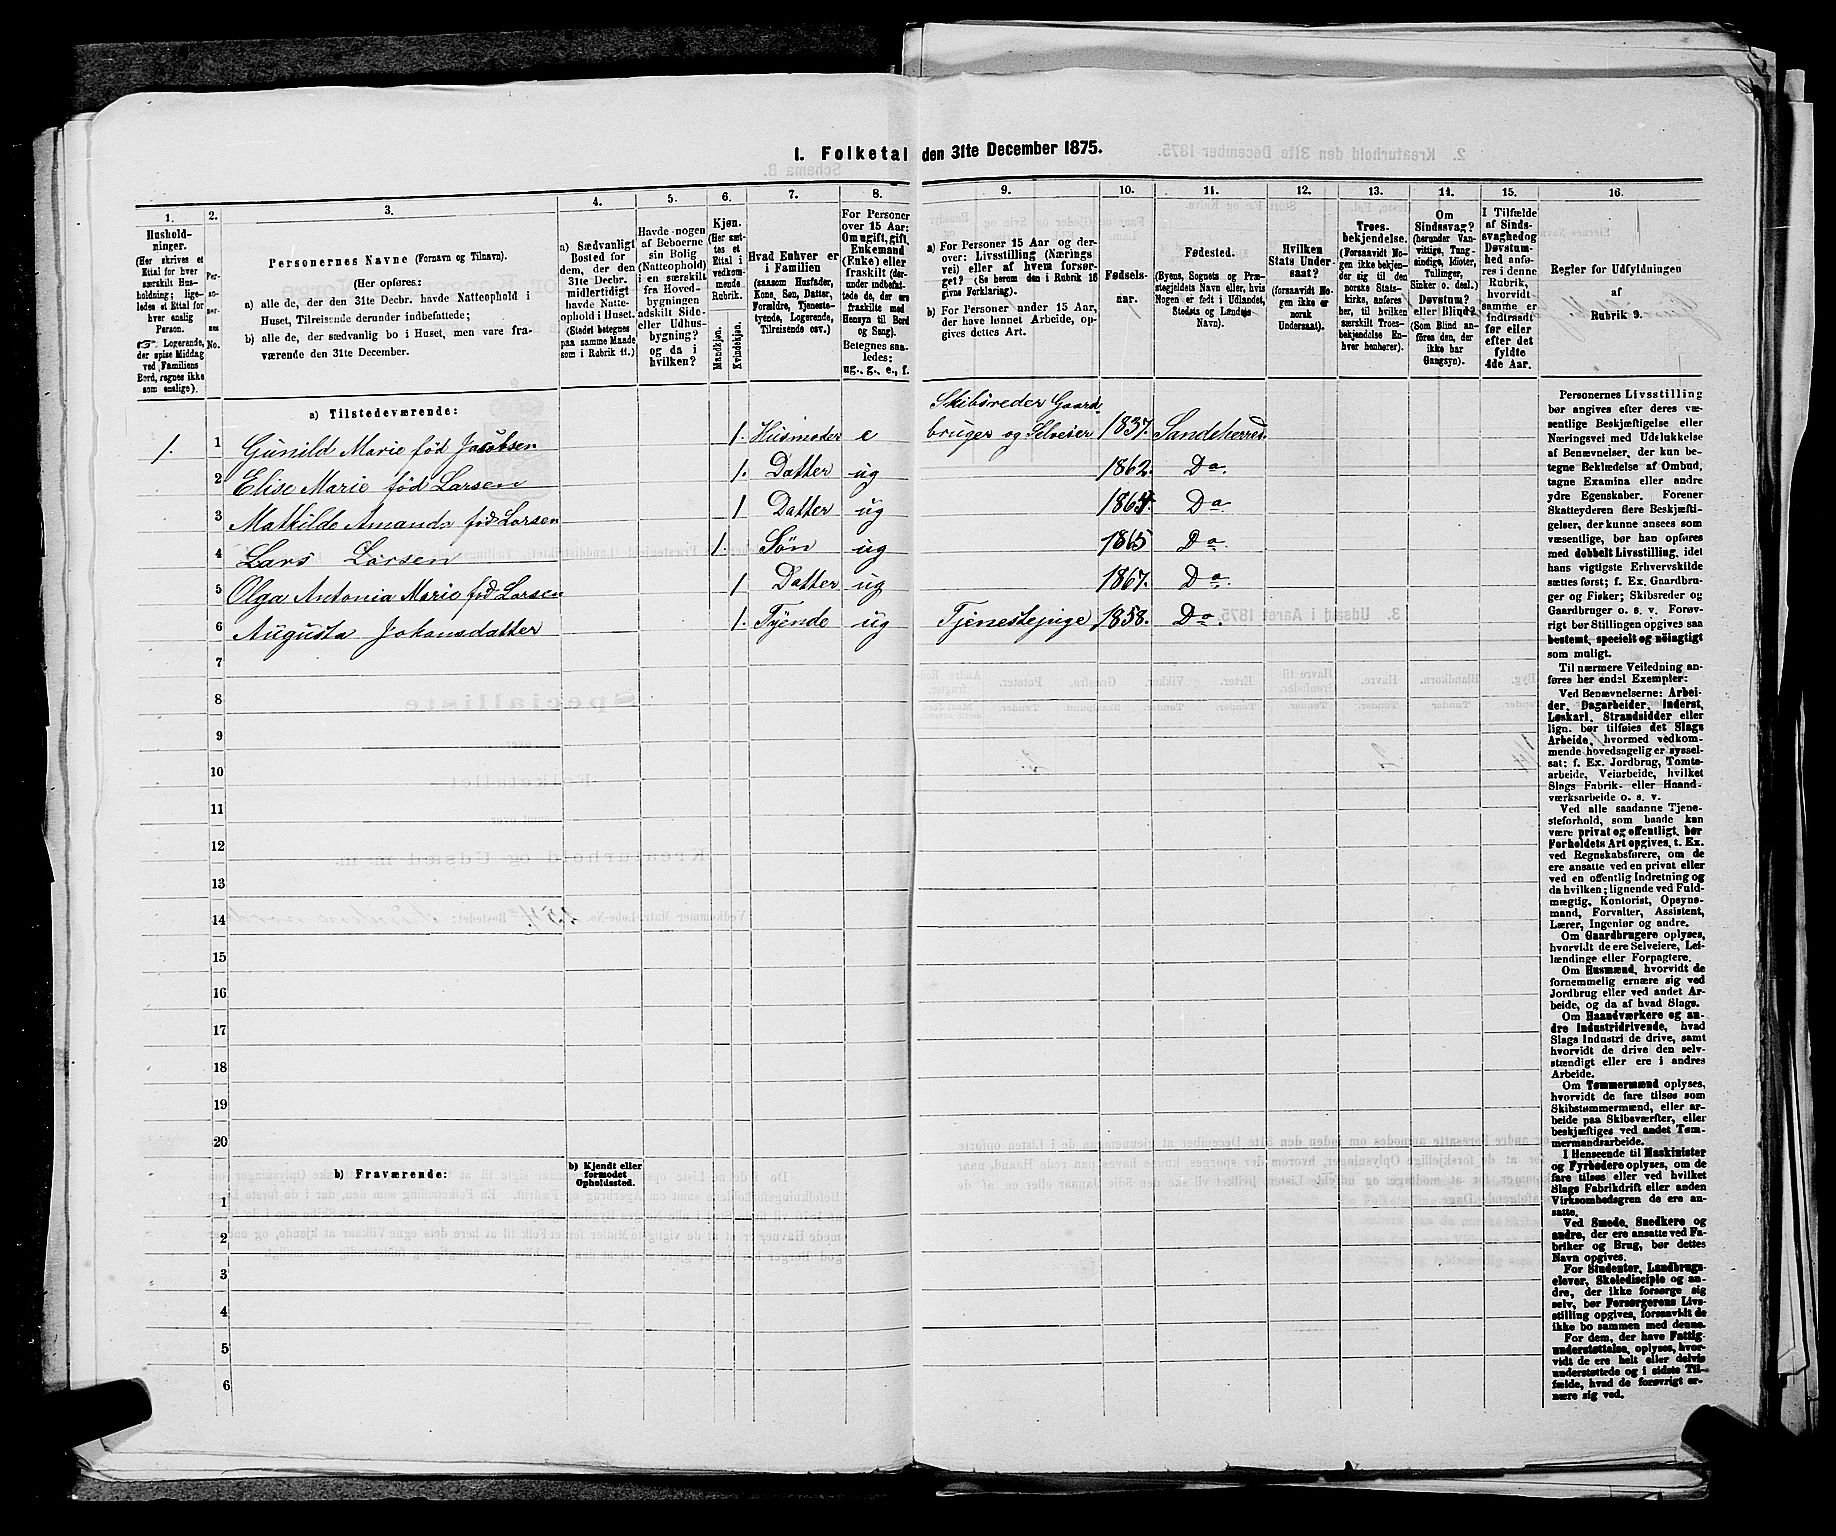 1. Folketal den 31te December 1875.
1.
2.
3.
4.
5.
6.
7.
8.
9.
10.
11.
12.
13.
14.
15.
16.
Husholdninger.
(Her skrives et
Ettal for hver
særskilt Husholdning;
ligeledes et Ettal for
hver enslig
Person.
Logerende,
der spise Middag
ved Familiens
Bord, regnes ikke
som enslige).
Personernes No.
Personernes Navne (Fornavn og Tilnavn).
(Her opføres:
a) alle de, der den 31te Decbr. havde Natteophold i
Huset, Tilreisende derunder indbefattede;
b) alle de, der sædvanlig bo i Huset, men vare fraværende
den 31te December.
a) Sædvanligt
Bosted for
dem, der den
31te Decbr.
midlertidigt
havde Natteophold
i Huset.
(Stedet betegnes
paa samme Maade
som i Rubrik 11.)
Havde nogen
af Beboerne
sin Bolig
(Natteophold)
i en særskilt
fra Hovedbygningen
adskilt Side-
eller Udhusbygning?
og da i
hvilken?
Kjøn.
(Her sættes
et
Ettal i
vedkommende
Rubrik.
Mandkjøn.
Kvindekjøn.
Hvad Enhver er
i Familien
(saasom Husfader,
Kone, Søn, Datter,
Forældre, Tjenestetyende,
Logerende,
Tilreisende osv.)
For Personer
over 15 Aar:
Om ugift, gift,
Enkemand
(Enke) eller
fraskilt (derunder
indbefattede
de, der ere
fraskilte med
Hensyn til Bord
og Seng).
Betegnes saaledes:
ug., g., e., f.
a) For Personer 15 Aar og derover:
Livsstilling (Næringsvei)
eller af hvem forsørget?
(Se herom den i Rubrik 16
givne Forklaring).
b) For Personer under 15 Aar,
der have lønnet Arbeide, opgives
dettes Art.
Fødselsaar.
Fødested.
(Byens, Sognets og Præstegjeldets
Navn eller, hvis
Nogen er født i Udlandet,
Stedets og Landets
Navn).
Hvilken
Stats Undersaat?
(forsaavidt Nogen
ikke er
norsk
Undersaat).
Troesbekjendelse.
(Forsaavidt Nogen
ikke bekjender
sig til den
norske Statskirke,
anføres
her, til hvilken
særskilt Troesbekjendelse
Enhver
henhører).
Om
Sindssvag?
(herunder Vanvittige,
Tungsindige,
Idioter,
Tullinger,
Sinker o. desl.)
Døvstum?
eller Blind?
(Som Blind anføres
den, der
ikke har
Gangsyn).
I Tilfælde
af Sindssvaghed
og
Døvstumhed
anføres
i denne
Rubrik,
hvorvidt
samme er
indtraadt
før eller
efter det
fyldte
4de Aar.
Regler for Udfyldningen
af
Rubrik 9.
a) Tilstedeværende:
1. 1 Gunild Marie fød Jacobsen 1. Husmoder e Skibsreder Gaardbruger og Selveier 1837. Sandeherred.
2 Elise Marie fød Larsen 1. Datter ug 1862. Do.
3 Mathilde Amanda fød Larsen 1 Datter ug 1864. Do
4 Lars Larsen 1. Søn ug 1865 Do.
5 Olga Antonia Marie fød Larsen 1 Datter ug 1867. Do.
6 Augusta Johansdatter 1. Tyende ug Tjenestepige 1858. Do.
7
8
9
10
11
12
13
14
15
16
17
18
19
20
b) Fraværende:
b) Kjendt eller
formodet
Opholdssted.
1
2
3
4
5
6
Personernes Livsstilling
bør angives efter deres væsentlige
Beskjæftigelse eller
Næringsvei med Udelukkelse
af Benævnelser, der kun betegne
Beklædelse af Ombud,
tagne Examina eller andre
ydre Egenskaber. Forener
Skatteyderen flere Beskjæftigelser,
der kunne ansees som
væsentlige, bør han opføres
med dobbelt Livsstilling, idet
hans vigtigste Erhvervskilde
sættes først; f. Ex. Gaardbruger
og Fisker; Skibsreder og
Gaardbruger o. s. v. Forøvrigt
bør Stillingen opgives saa
bestemt, specielt og nöiagtigt
som muligt.
Til nærmere Veiledning anføres
her endel Exempler:
Ved Benævnelserne: Arbeider,
Dagarbeider, Inderst,
Løskarl, Strandsidder eller
lign. bør tilføies det Slags
Arbeide, hvormed vedkommende
hovedsagelig er sysselsat;
f. Ex. Jordbrug, Tomtearbeide,
Veiarbeide, hvilket
Slags Fabrik- eller Haandværksarbeide
o. s. v.
Ved alle saadanne Tjenesteforhold,
som baade kan
være privat og offentligt, bør
Forholdets Art opgives, t. Ex.
ved Regnskabsførere, om de
ere ansatte ved en privat eller
ved en offentlig Indretning og
da hvilken; lignende ved Fuldmægtig,
Kontorist, Opsynsmand,
Forvalter, Assistent,
Lærer, Ingeniør og andre.
Om Gaardbrugere oplyses,
hvorvidt de ere Selveiere, Leilændinge
eller Forpagtere.
Om Husmænd, hvorvidt de
fornemmelig ernære sig ved
Jordbrug eller ved andet Arbeide,
og da af hvad Slags.
Om Haandværkere og andre
industridrivende, hvad
Slags Industri de drive, samt
hvorvidt de drive den selvstændigt
eller ere i andres
Arbeide.
Om Tømmermænd oplyses,
hvorvidt de fare tilsøs som
Skibstømmermænd, eller arbeide
paa Skibsværfter, eller
beskjæftiges ved andet Tømmermandsarbeide.
I Henseende til Maskinister
og Fyrbødere oplyses, om de
fare tilsøs eller ved hvilket
Slags Fabrikdrift eller anden
Virksomhedsgren de ere ansatte.
Ved Smede, Snedkere og
andre, der ere ansatte ved Fabriker
og Brug, bør dettes
Navn opgives.
For Studenter, Landbrugselever,
Skoledisciple og andre,
der ikke forsørge sig
selv, bør Forsørgerens Livsstilling
opgives, forsaavidt de
ikke bo sammen med denne.
For dem, der have Fattigunderstøttelse,
oplyses, hvorvidt
de ere helt eller delvis
understøttede og i sidste Tilfælde,
hvad de forøvrigt ernære
sig ved.